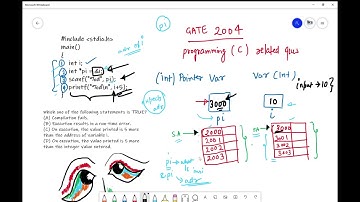 #include <stdio.h>
main()
{
int i;
int *pi = &i;
scanf("%d", pi);
printf("%d\n", i+5);
}
which one of the following statements is TRUE?
(A) Compilation fails.
(B) Execution results in a run-time error.
(C) On execution, the value printed is 5 more
than the address of variable i.
(D) On execution, the value printed is 5 more
than the integer value entered.
GATE 2004
programming (C) related ques
(int) Pointer Var
Var (int)
input → 10
3000
10
pi
i
SA →
2000
2001
2002
2003
SA →
3000
3001
3002
3003